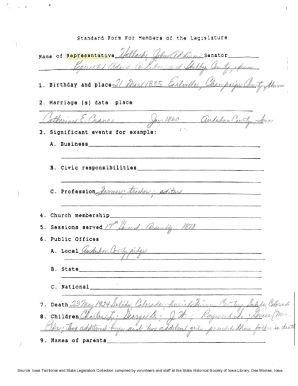 Standard Form For Members of the Legislature
Name of Representative Wallace, John Senator
Represented Adair, Audubon and Shelby County, Iowa
1. Birthday and place 21 1835 Champaign County,
2. Marriage (s) date place
Catherine E. Crane Jan 1860 Audubon County Iowa
3. Significant events for example:
A. Business
B. Civic responsibilities
C. Profession farmer; teacher; editor
4. Church membership
5. Sessions served 17th General Assembly 1878
6. Public Offices
A. Local Audubon County Judge
B. State
C. National
7. Death 23 May 1924 Salida, Colorado; Cemetery, Salida Colorado
8. Children Charles; Margaret; J.W.; Raymond;
two additional boys and two additional girls preceded their father in death
9. Names of parents
Source: Iowa Territorial and State Legislators Collection compiled by volunteers and staff at the State Historical Society of Iowa Library, Des Moines, Iowa.